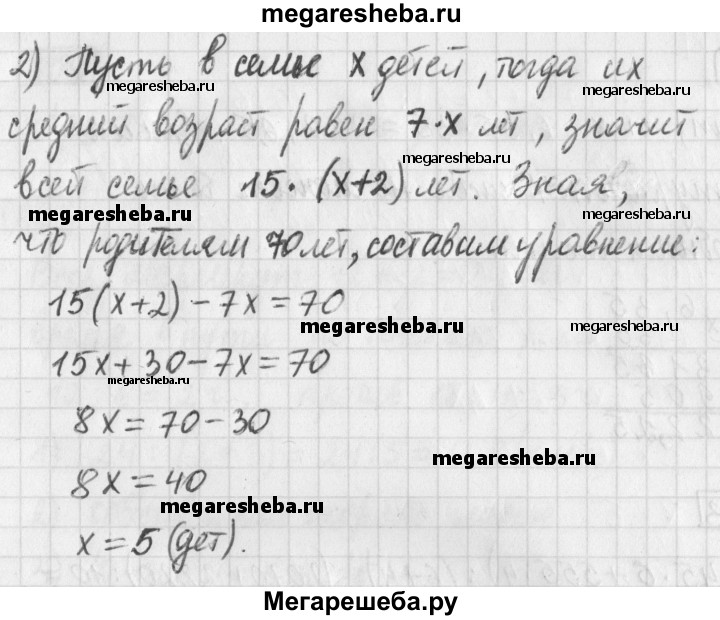 megaresheba.ru
2) Пусть в семье x детей, тогда их
megaresheba.ru megaresheba.ru
средний возраст равен 7·x лет, значит
megaresheba.ru
всей семье 15·(x+2) лет. Зная,
megaresheba.ru megaresheba.ru
что родителям 70 лет, составим уравнение:
15(x+2)-7x=70
megaresheba.ru megaresheba.ru
15x+30-7x=70
megaresheba.ru
8x=70-30
megaresheba.ru
8x=40
megaresheba.ru
x=5 (дет).
Мегарешеба.ру